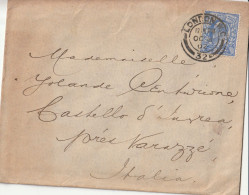 LONDON
32
Mademoiselle
Yolande Centurione,
Castello d'Invrea
près Varazzé
Italia.